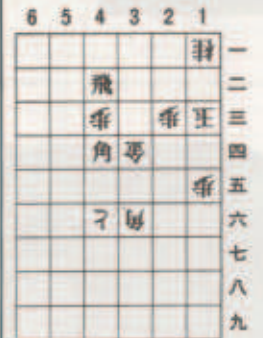 6 5 4 3 2 1
桂 一
飛 二
歩 歩 玉 三
角 金 四
歩 五
と 角 六
七
八
九